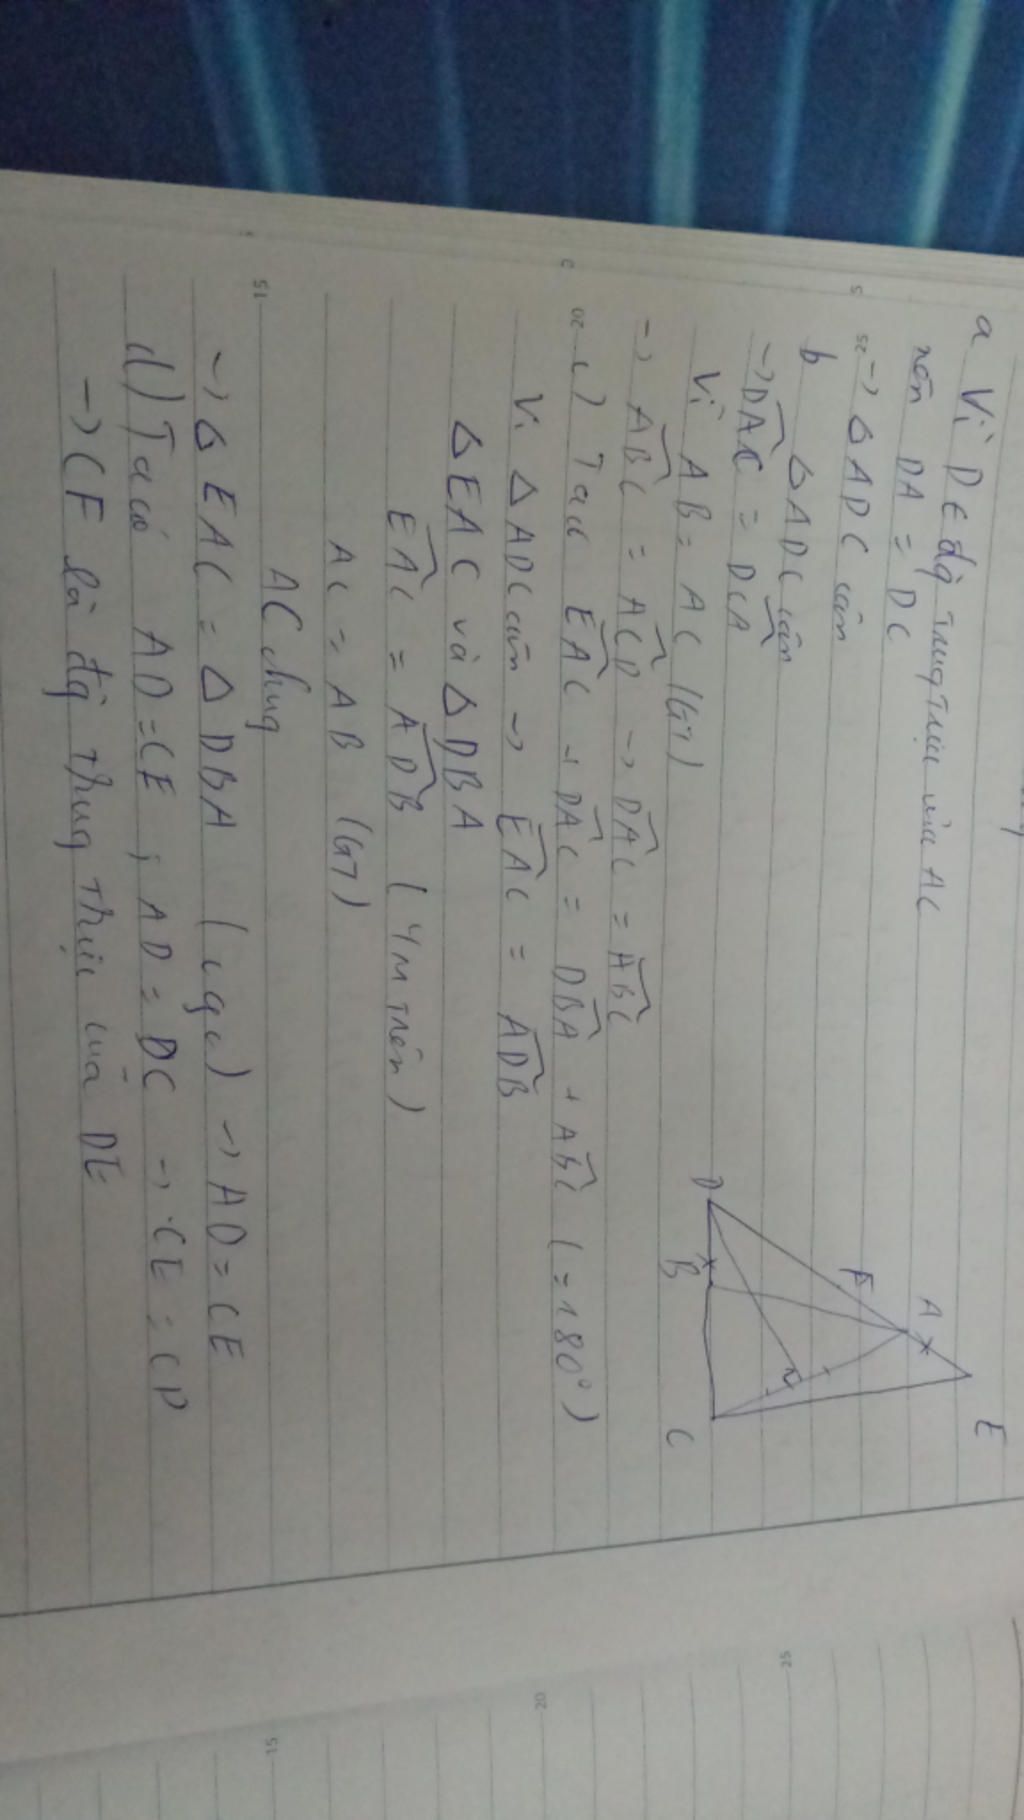 a Vì DE đg Trung Trực của AC
nên DA = DC
→ Δ ADC cân
b ΔADC cân
→ DAC = DCA
Vì AB = AC (GT)
→ ABC = ACD → DAC = ABC
c) Ta có EAC + DAC = DBA + ABC (= 180°)
Vì Δ ADC cân → EAC = ADB
Δ EAC và Δ DBA
EAC = ADB (CM trên)
AC = AB (GT)
AC chung
→ Δ EAC = Δ DBA (cgc) → AD = CE
d) Ta có AD = CE ; AD = DC → CE = CD
→ CF là đg Trung Trực của DE
D
B
F
A
E
C
5
25
20
15
25
20
15